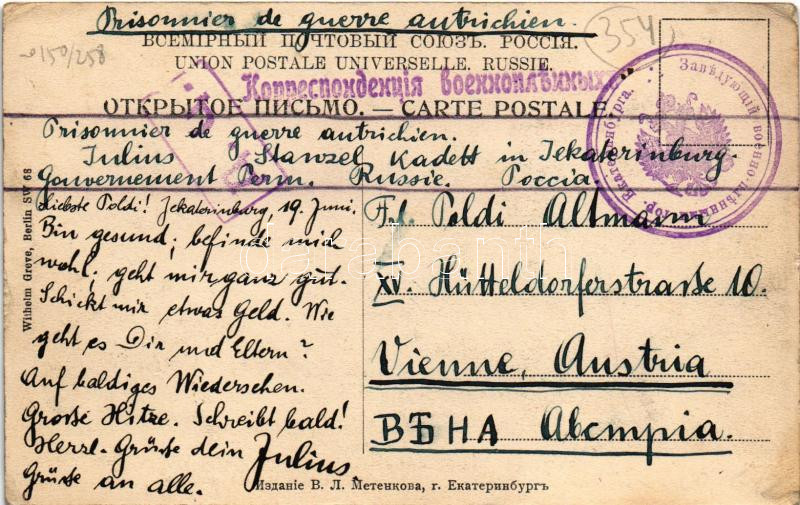 Prisonnier de guerre autrichien.
354
150/258
ВСЕМІРНЫЙ ПОЧТОВЫЙ СОЮЗЪ. РОССІЯ.
UNION POSTALE UNIVERSELLE. RUSSIE.
Корреспонденція военноплѣнныхъ
ОТКРЫТОЕ ПИСЬМО. — CARTE POSTALE
Завѣдующій военно-плѣнными гор. Екатеринбурга.
Prisonnier de guerre autrichien.
Julius Stanzel Kadett in Jekaterinburg.
Gouvernement Perm. Russie. Россіа.
Liebste Poldi! Jekaterinburg, 19. Juni.
Bin gesund; befinde mich
wohl; geht mir ganz gut.
Schickt mir etwas Geld. Wie
geht es Dir und Eltern?
Auf baldiges Wiedersehen.
Grosse Hitze. Schreibt bald!
Herzl. Grüsse dein Julius.
Grüsse an alle.
Frl. Poldi Altmann
XV. Hütteldorferstrasse 10.
Vienne, Austria
ВѢНА Австрія.
Wilhelm Greve, Berlin SW 68
Изданіе В. Л. Метенкова, г. Екатеринбургъ
darabanth